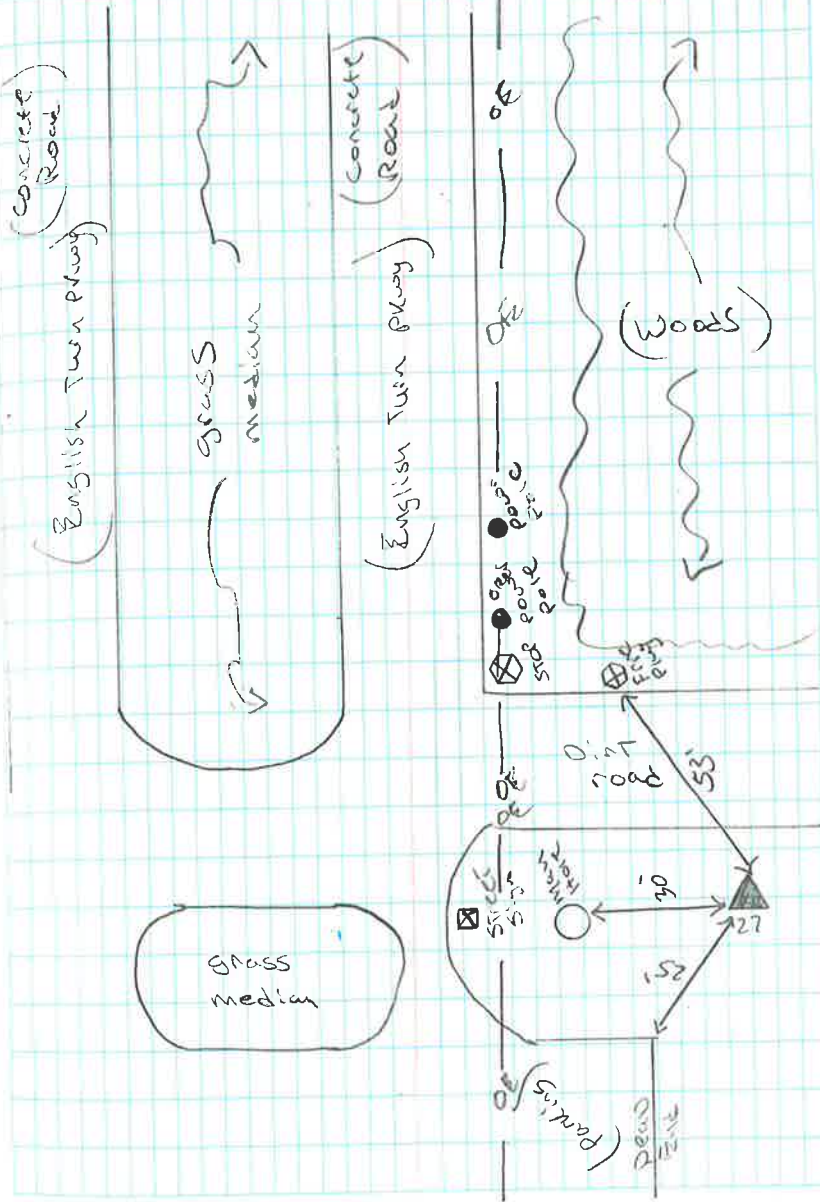 (Concrete
Road)
(English Turn Pkwy)
grass
median
(Concrete
Road)
(English Turn Pkwy)
OE
OE
(Woods)
Power
Pole
Power
Pole
STOP
Fire
Plug
Dirt
road
53'
OE
OE
Street
Sign
Man
Hole
30'
27
grass
median
OE
(Parking
Dead
End